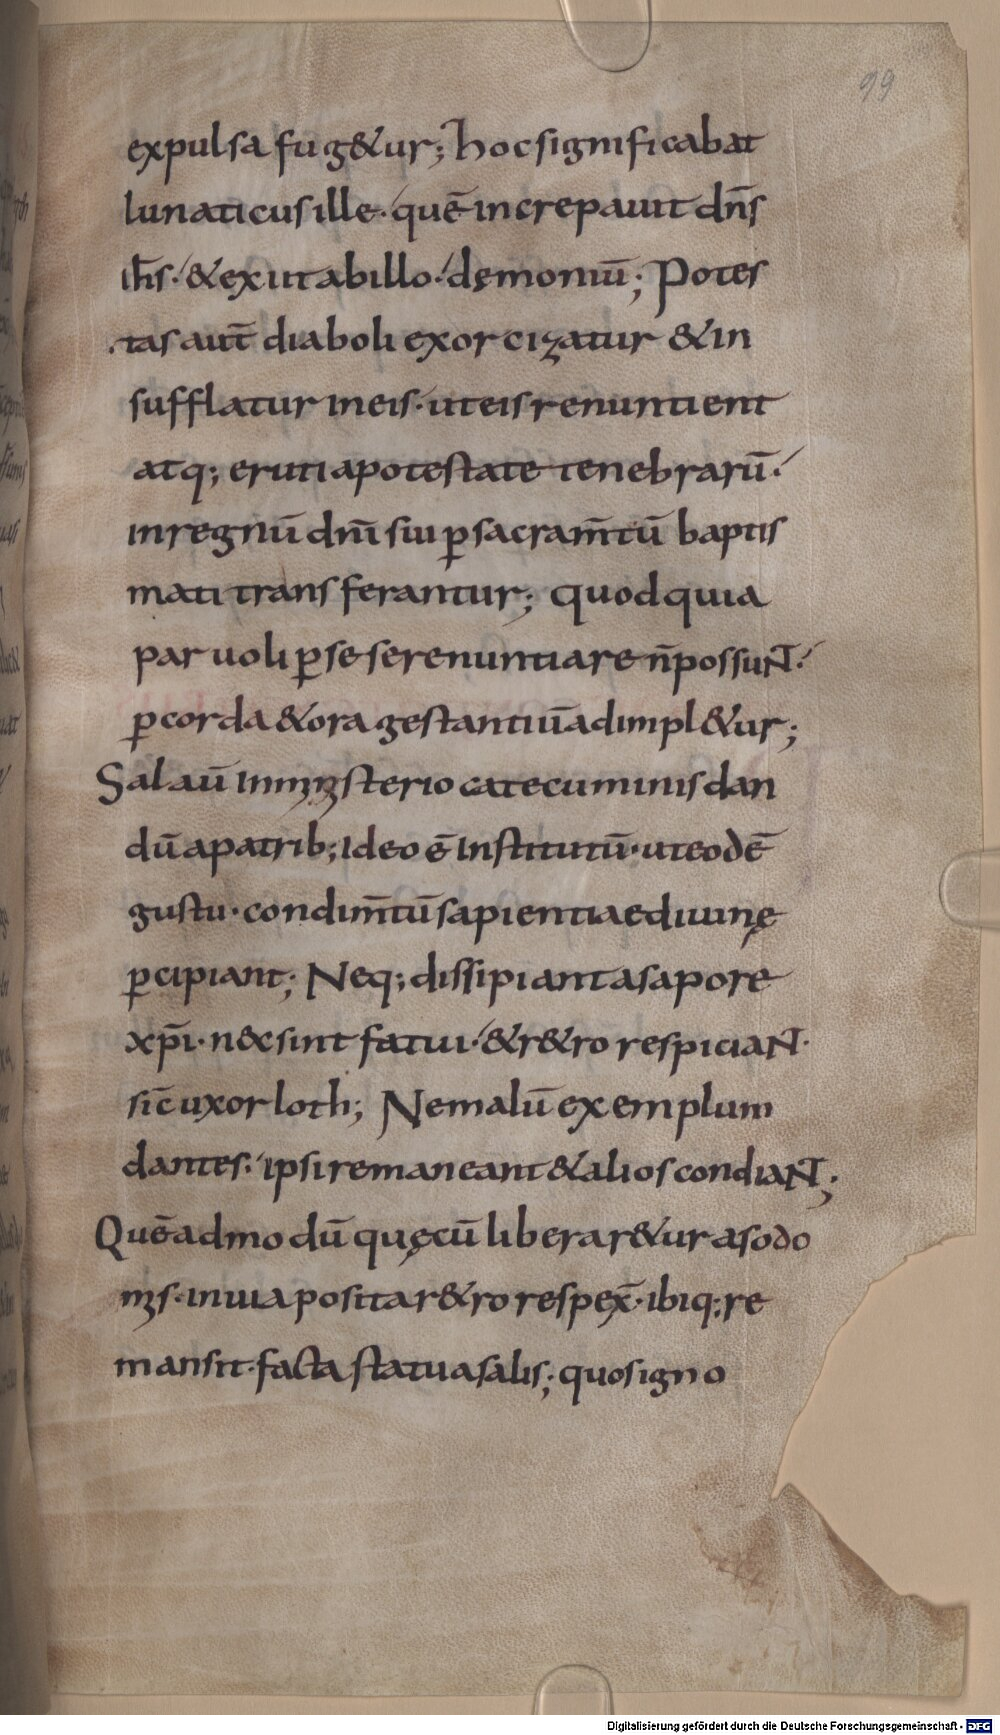 99
expulsa fug&ur; hoc significabat
lunaticus ille· quē increpauit dn̄s
ih̄s· & exiit ab illo· dęmoniū; Potes
tas aut̄ diaboli exorcizatur & in
sufflatur in eis· ut eis renuntient
atq; eruti a potestate tenebrarū·
in regnū dn̄i sui ꝑ sacram̄tū baptis
mati transferantur; quod quia
paruoli ꝑ se se renuntiare n̄ possunt·
ꝑ corda & ora gestantiū adimpl&ur;
Sal aū in mysterio catecuminis dan
dū a patrib; Ideo ē institutū· ut eodē
gustu· condim̄tū sapientiae diuinę
ꝑcipiant; Neq; dissipiant a sapore
xp̄i· nec sint fatui· & r&ro respiciant·
sic̄ uxor loth; Ne malū exemplum
dantes· ipsi remaneant & alios condiant;
Quēadmodū quęcū liberar&ur a sodo
mys· in uia posita r&ro respex̄· ibiq; re
mansit· facta statua salis; quo signo
Digitalisierung gefördert durch die Deutsche Forschungsgemeinschaft - DFG